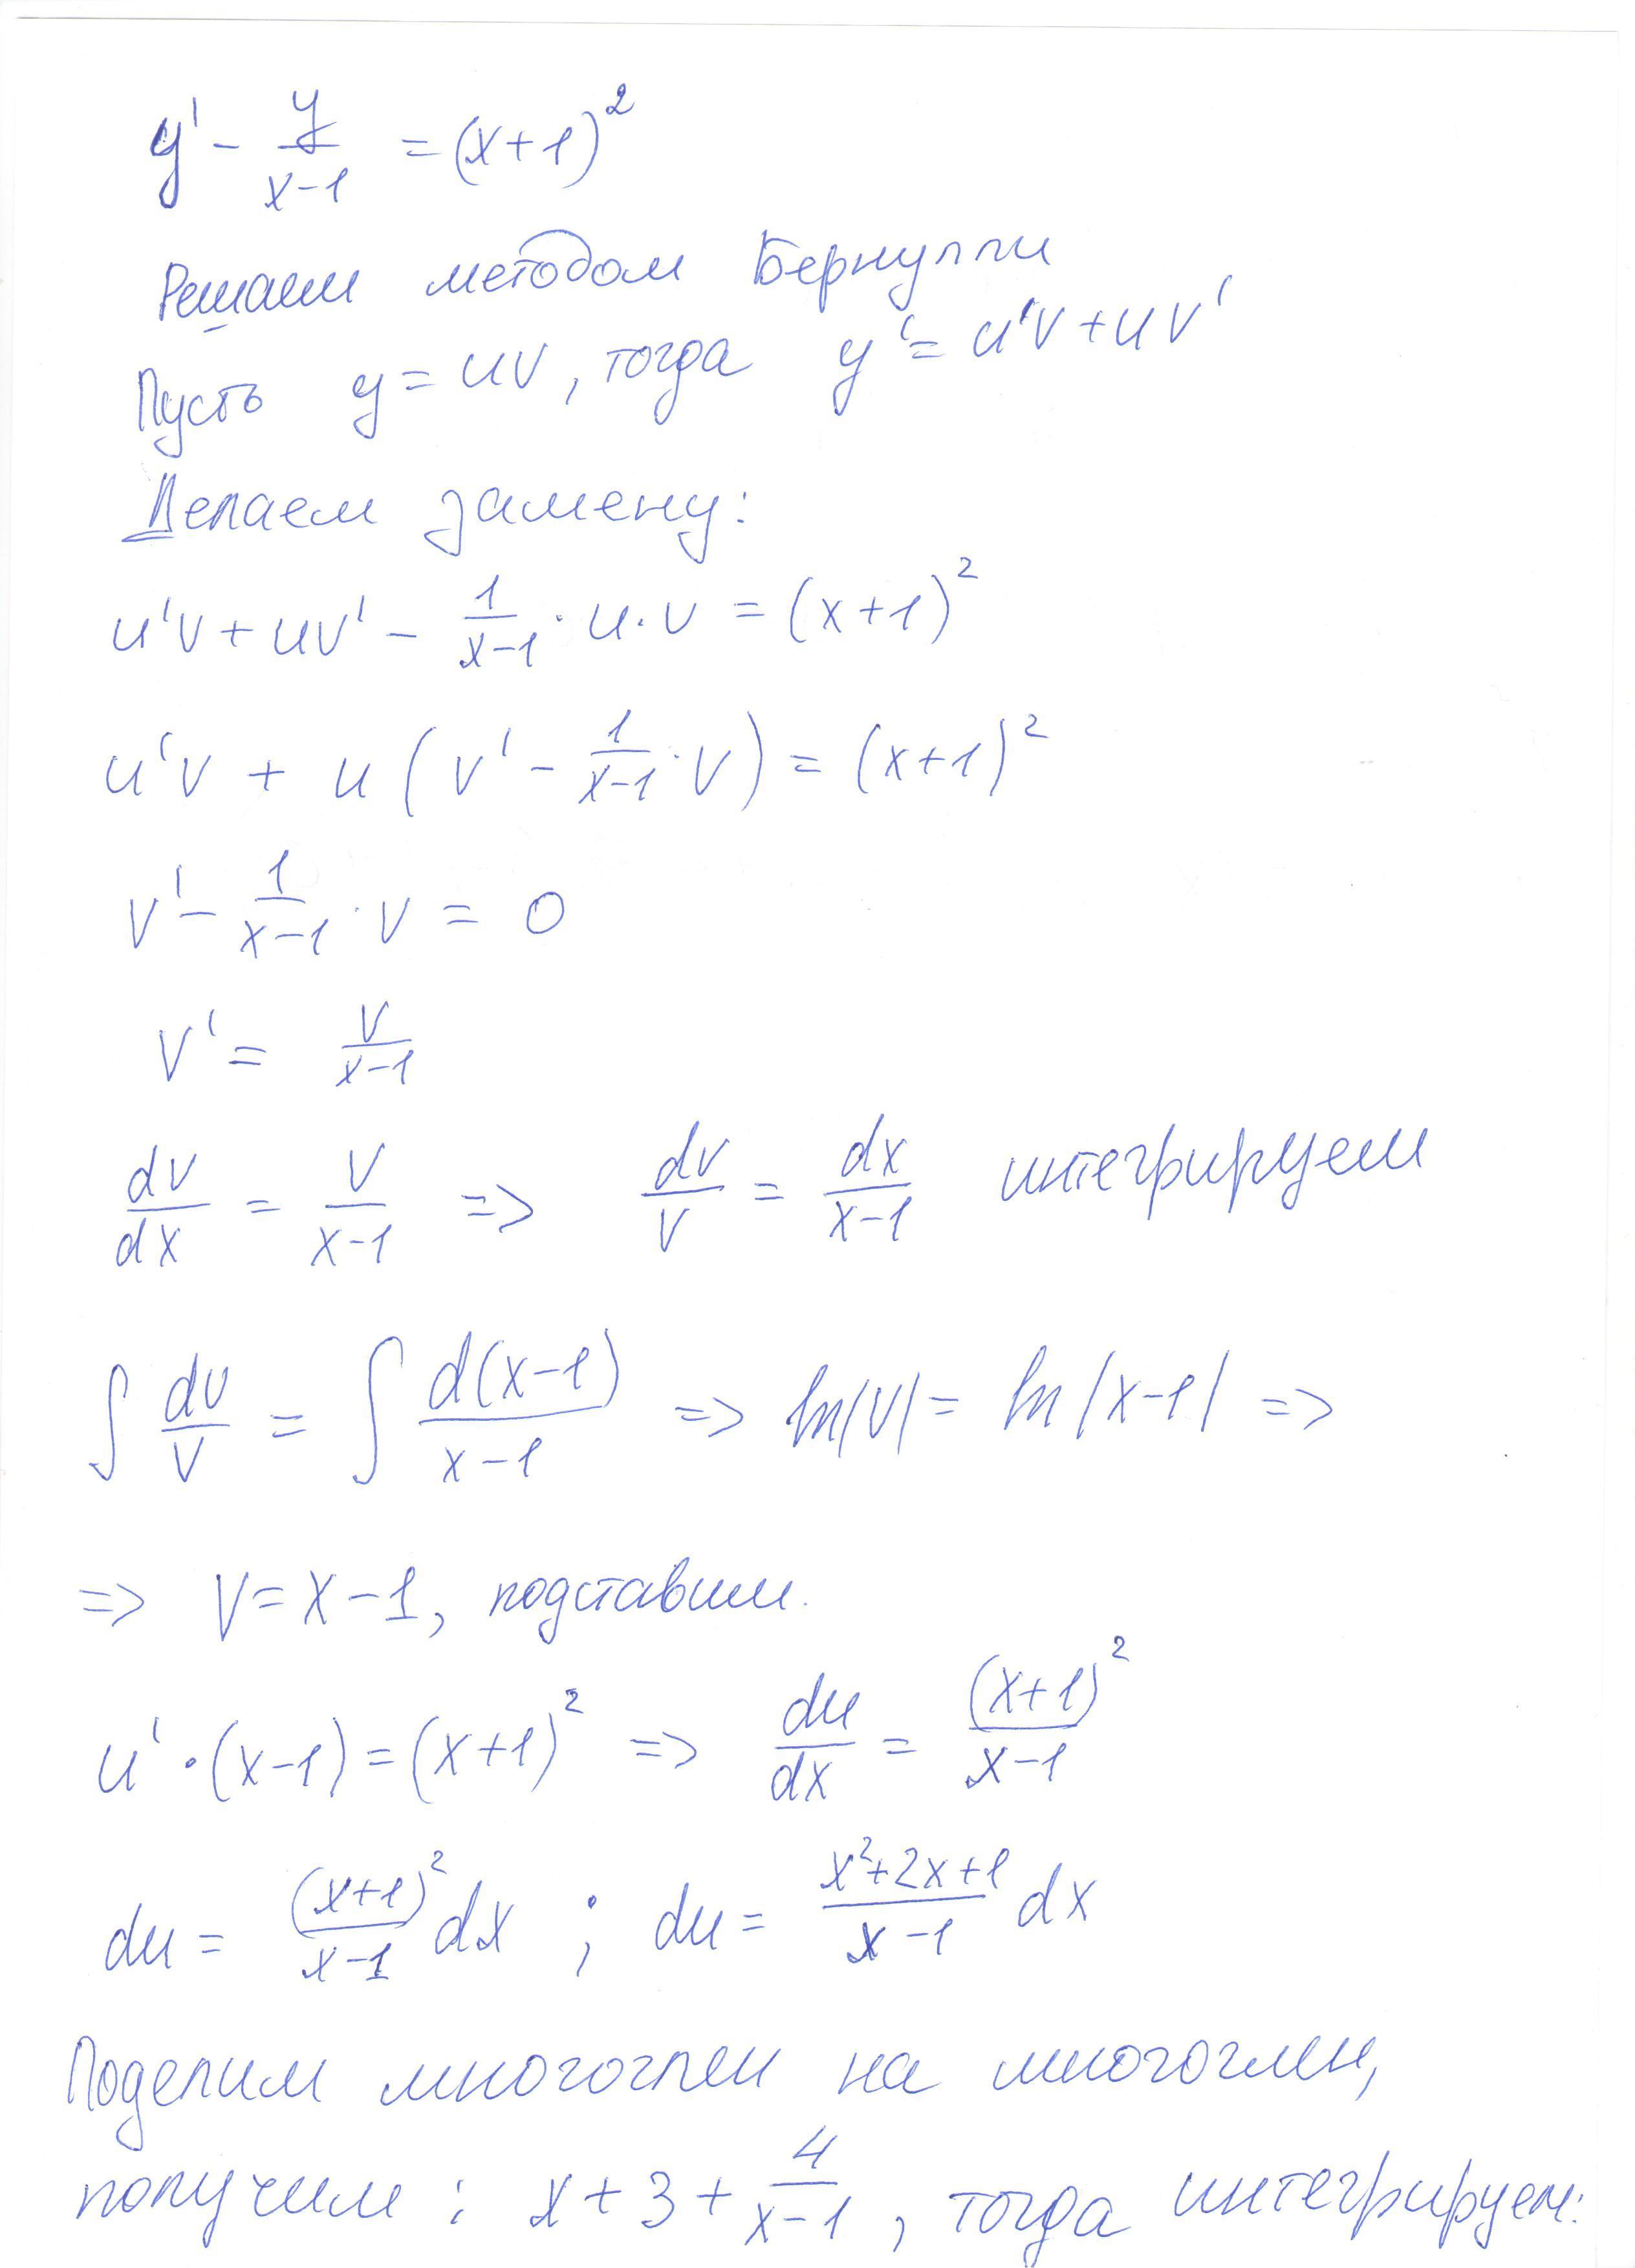 y' - y/(x-1) = (x+1)²
Решаем методом Бернулли
Пусть y = uv, тогда y' = u'v + uv'
Делаем замену:
u'v + uv' - 1/(x-1) · u · v = (x+1)²
u'v + u(v' - 1/(x-1) · v) = (x+1)²
v' - 1/(x-1) · v = 0
v' = v/(x-1)
dv/dx = v/(x-1) => dv/v = dx/(x-1) интегрируем
∫ dv/v = ∫ d(x-1)/(x-1) => ln|v| = ln|x-1| =>
=> v = x-1, подставим.
u' · (x-1) = (x+1)² => du/dx = (x+1)²/(x-1)
du = (x+1)²/(x-1) dx ; du = (x²+2x+1)/(x-1) dx
Поделим многочлен на многочлен,
получим : x + 3 + 4/(x-1), тогда интегрируем: